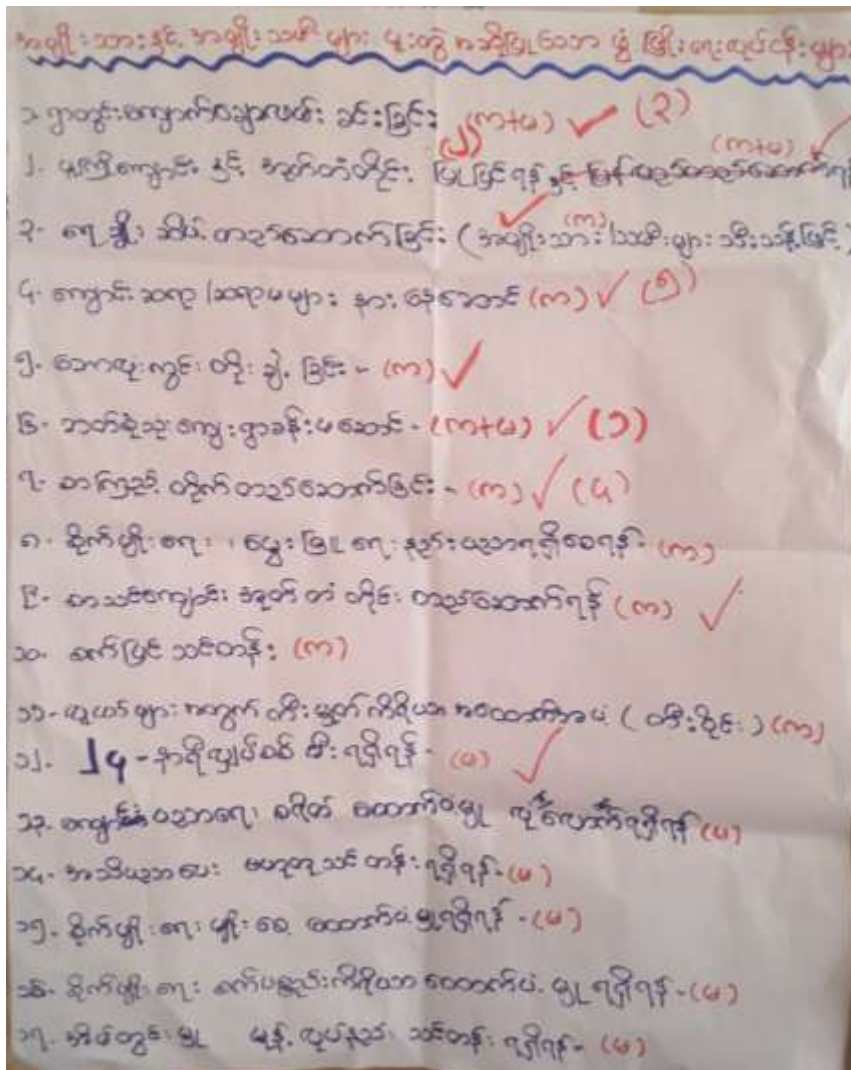 အမျိုးသားနှင့် အမျိုးသမီးများ ပူးတွဲအဆိုပြုသော ဖွံ့ဖြိုးရေးလုပ်ငန်းများ
၁. ရွာတွင်းကျောက်ချောလမ်း ခင်းခြင်း (က+မ) ✓ (၃)
၂. မူကြိုကျောင်း နှင့် အုတ်တံတိုင်း ပြုပြင်ရန် နှင့် ပြန်လည်တည်ဆောက်ရန် (၂) (က+မ) ✓
၃. ရေချိုး ဆိပ် တည်ဆောက်ခြင်း (အမျိုးသား/သမီးများ သီးသန့်ဖြင့်) ✓ (က)
၄. ကျောင်းဆရာ/ဆရာမများ နားနေဆောင် (က) ✓ (၅)
၅. ဘောလုံးကွင်း တိုးချဲ့ခြင်း - (က) ✓
၆. ဘက်စုံသုံးကျေးရွာခန်းမဆောင် - (က+မ) ✓ (၁)
၇. စာကြည့်တိုက်တည်ဆောက်ခြင်း - (က) ✓ (၄)
၈. စိုက်ပျိုးရေး ၊ မွေးမြူရေး နည်းပညာရရှိစေရန် - (က)
၉. စာသင်ကျောင်း အုတ်တံတိုင်း တည်ဆောက်ရန် (က) ✓
၁၀. စက်ပြင် သင်တန်း (က)
၁၁- လူငယ်များအတွက် တီးမှုတ်ကိရိယာ အထောက်အပံ့ (တီးဝိုင်း) (က)
၁၂. ၂၄ - နာရီလျှပ်စစ်မီးရရှိရန် - (မ) ✓
၁၃. ပညာရေး စရိတ် ထောက်ပံ့မှု လုံလောက်ရရှိရန် (မ)
၁၄- အသိပညာပေး ဗဟုသုသင်တန်းရရှိရန် - (မ)
၁၅- စိုက်ပျိုးရေး မျိုးစေ့ ထောက်ပံ့မှုရရှိရန် - (မ)
၁၆- စိုက်ပျိုးရေး စက်ပစ္စည်းကိရိယာ ထောက်ပံ့မှု ရရှိရန် - (မ)
၁၇. အိမ်တွင်းမှု မုန့်လုပ်နည်း သင်တန်း ရရှိရန် - (မ)